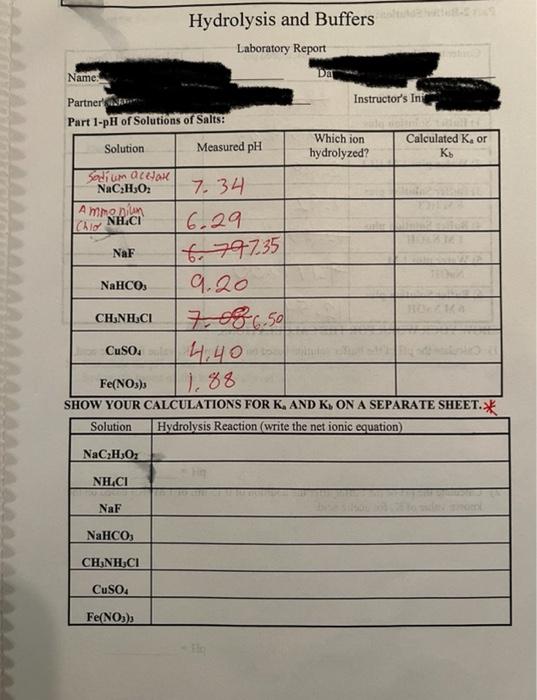 Hydrolysis and Buffers
Laboratory Report
Name:
Da
Partner's
Instructor's Ini
Part 1-pH of Solutions of Salts:
Solution Measured pH Which ion hydrolyzed? Calculated Ka or Kb
Sodium acetate
NaC₂H₃O₂ 7.34
Ammonium
Chlor NH₄Cl 6.29
NaF 6.79 7.35
NaHCO₃ 9.20
CH₃NH₃Cl 7.08 6.50
CuSO₄ 4.40
Fe(NO₃)₃ 1.88
SHOW YOUR CALCULATIONS FOR Ka AND Kb ON A SEPARATE SHEET.*
Solution Hydrolysis Reaction (write the net ionic equation)
NaC₂H₃O₂
NH₄Cl
NaF
NaHCO₃
CH₃NH₃Cl
CuSO₄
Fe(NO₃)₃